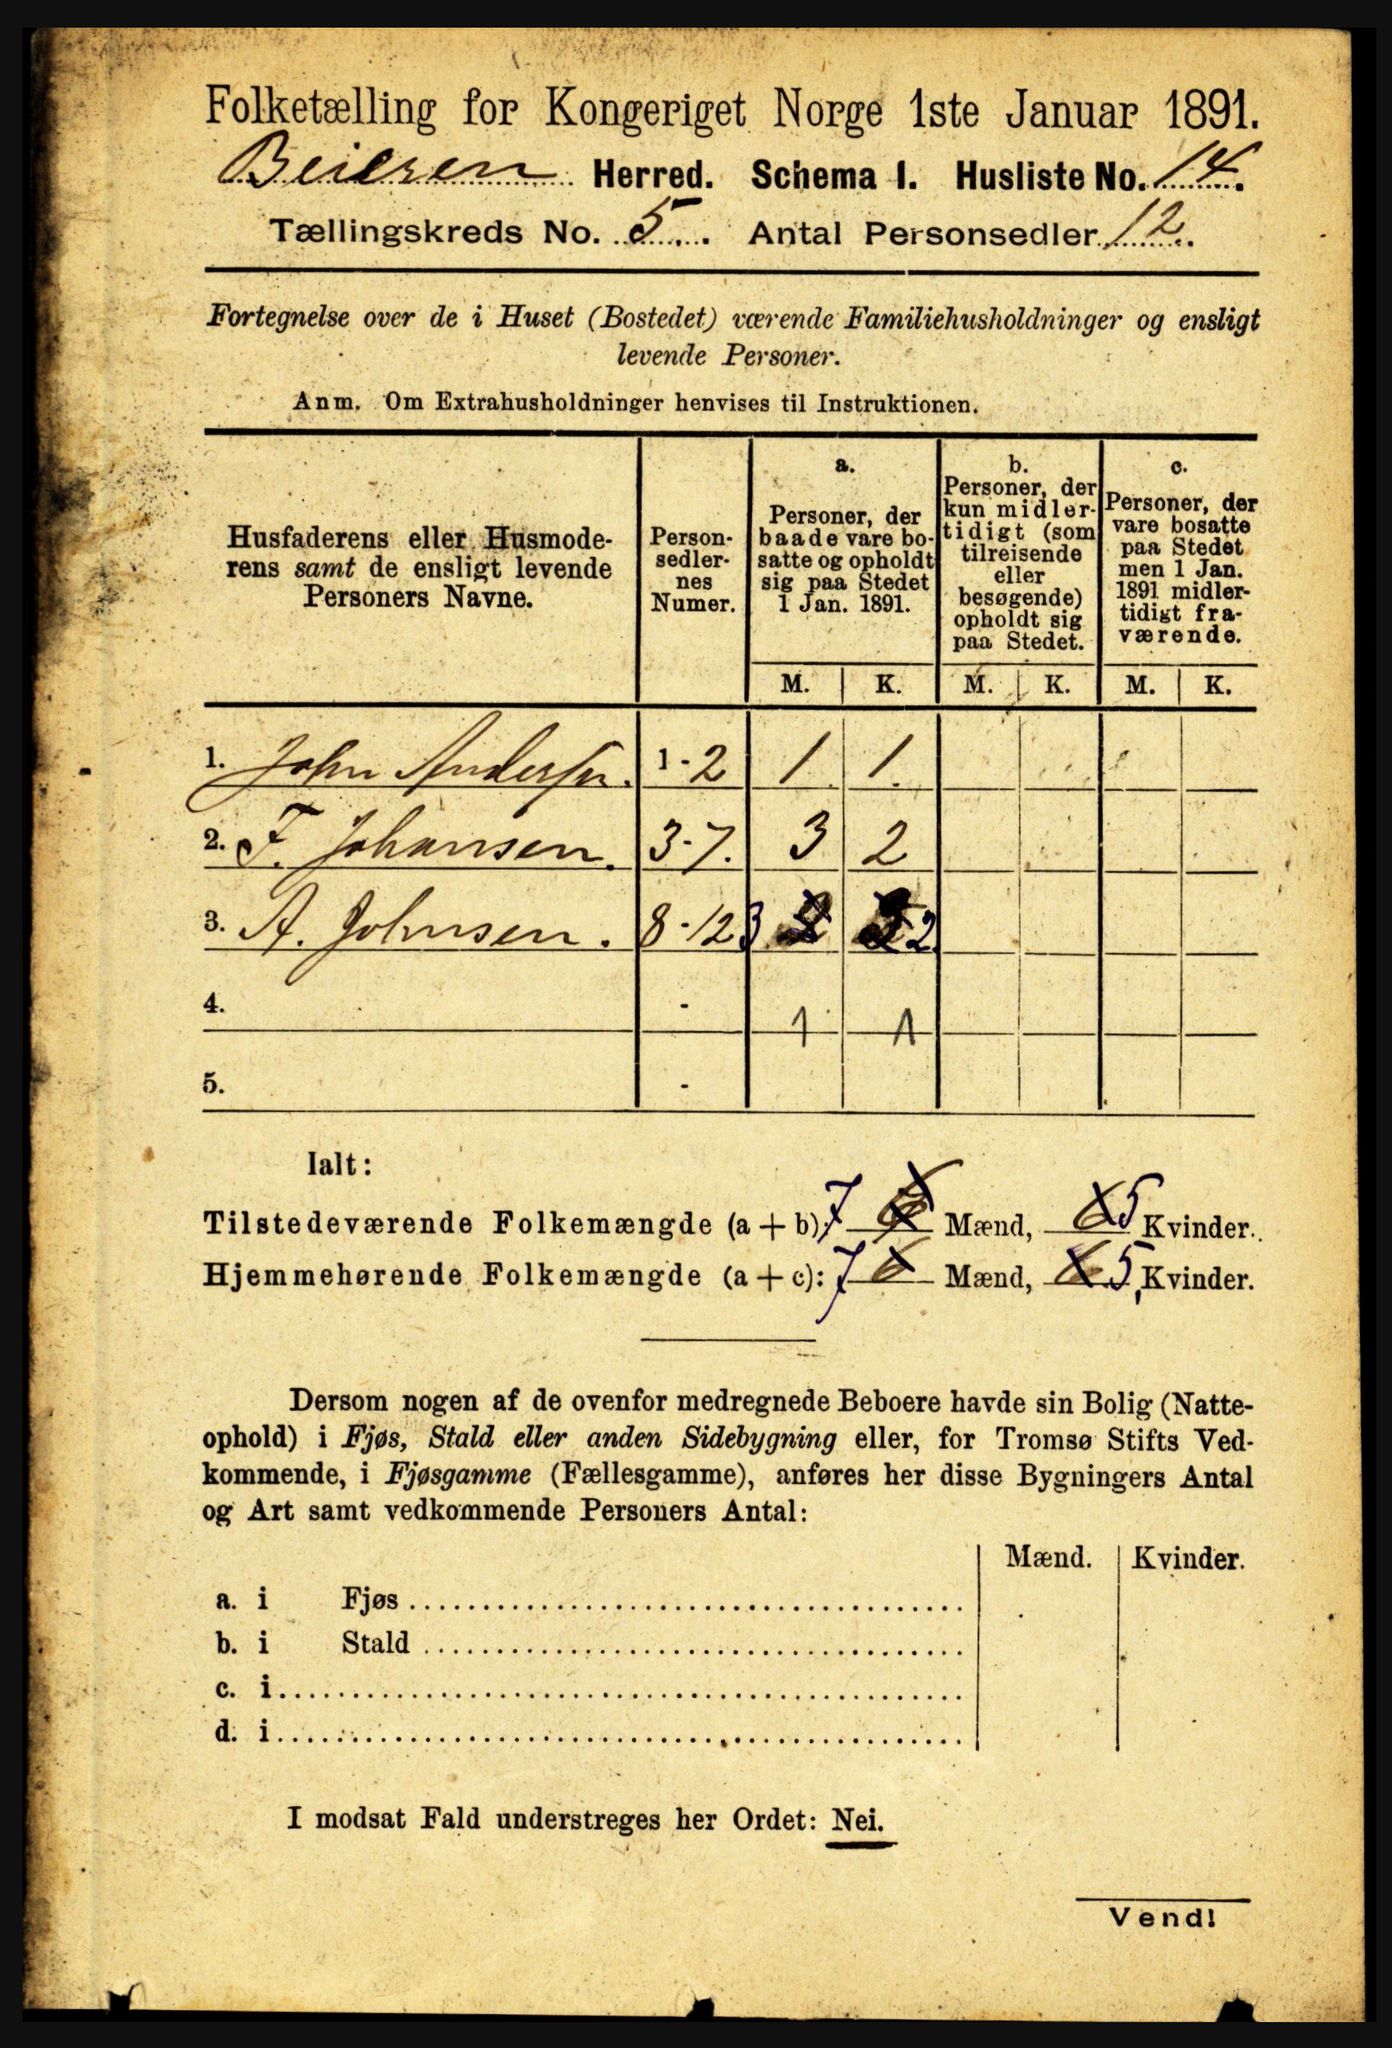 Folketælling for Kongeriget Norge 1ste Januar 1891.
Beieren Herred. Schema I. Husliste No. 14.
Tællingskreds No. 5. Antal Personsedler 12.
Fortegnelse over de i Huset (Bostedet) værende Familiehusholdninger og ensligt
levende Personer.
Anm. Om Extrahusholdninger henvises til Instruktionen.
Husfaderens eller Husmode-
rens samt de ensligt levende
Personers Navne.
Person-
sedler-
nes
Numer.
a.
Personer, der
baade vare bo-
satte og opholdt
sig paa Stedet
1 Jan. 1891.
b.
Personer, der
kun midler-
tidigt (som
tilreisende
eller
besøgende)
opholdt sig
paa Stedet.
c.
Personer, der
vare bosatte
paa Stedet
men 1 Jan.
1891 midler-
tidigt fra-
værende.
M. K. M. K. M. K.
1. John Andersen. 1-2 1 1.
2. F. Johansen. 3-7. 3 2
3. A. Johnsen. 8-12 3 2
4. - 1 1
5. -
Ialt:
Tilstedeværende Folkemængde (a + b): 7 6 Mænd, 6 5 Kvinder.
Hjemmehørende Folkemængde (a + c): 7 6 Mænd, 6 5 Kvinder.
Dersom nogen af de ovenfor medregnede Beboere havde sin Bolig (Natte-
ophold) i Fjøs, Stald eller anden Sidebygning eller, for Tromsø Stifts Ved-
kommende, i Fjøsgamme (Fællesgamme), anføres her disse Bygningers Antal
og Art samt vedkommende Personers Antal:
Mænd. Kvinder.
a. i Fjøs
b. i Stald
c. i
d. i
I modsat Fald understreges her Ordet: Nei.
Vend!